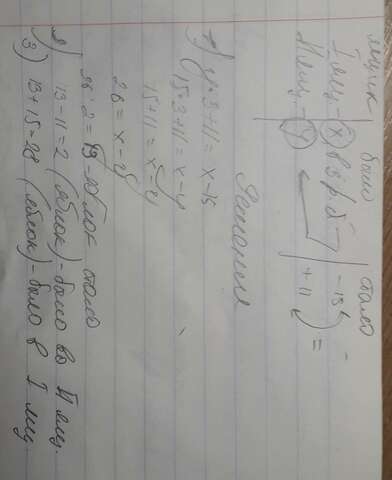 ящик было стало
I ящ. - (x) в 3 р б - 15
II ящ. - (y) + 11 ) =
Решение
1) y·3+11 = x-15
(15·3+11 = x-y
15+11 = x-y
26 = x-y
26:2=13 - яблок стало
2) 13-11=2 (яблок) - было во II ящ.
3) 13+15=28 (яблок) - было в I ящ.